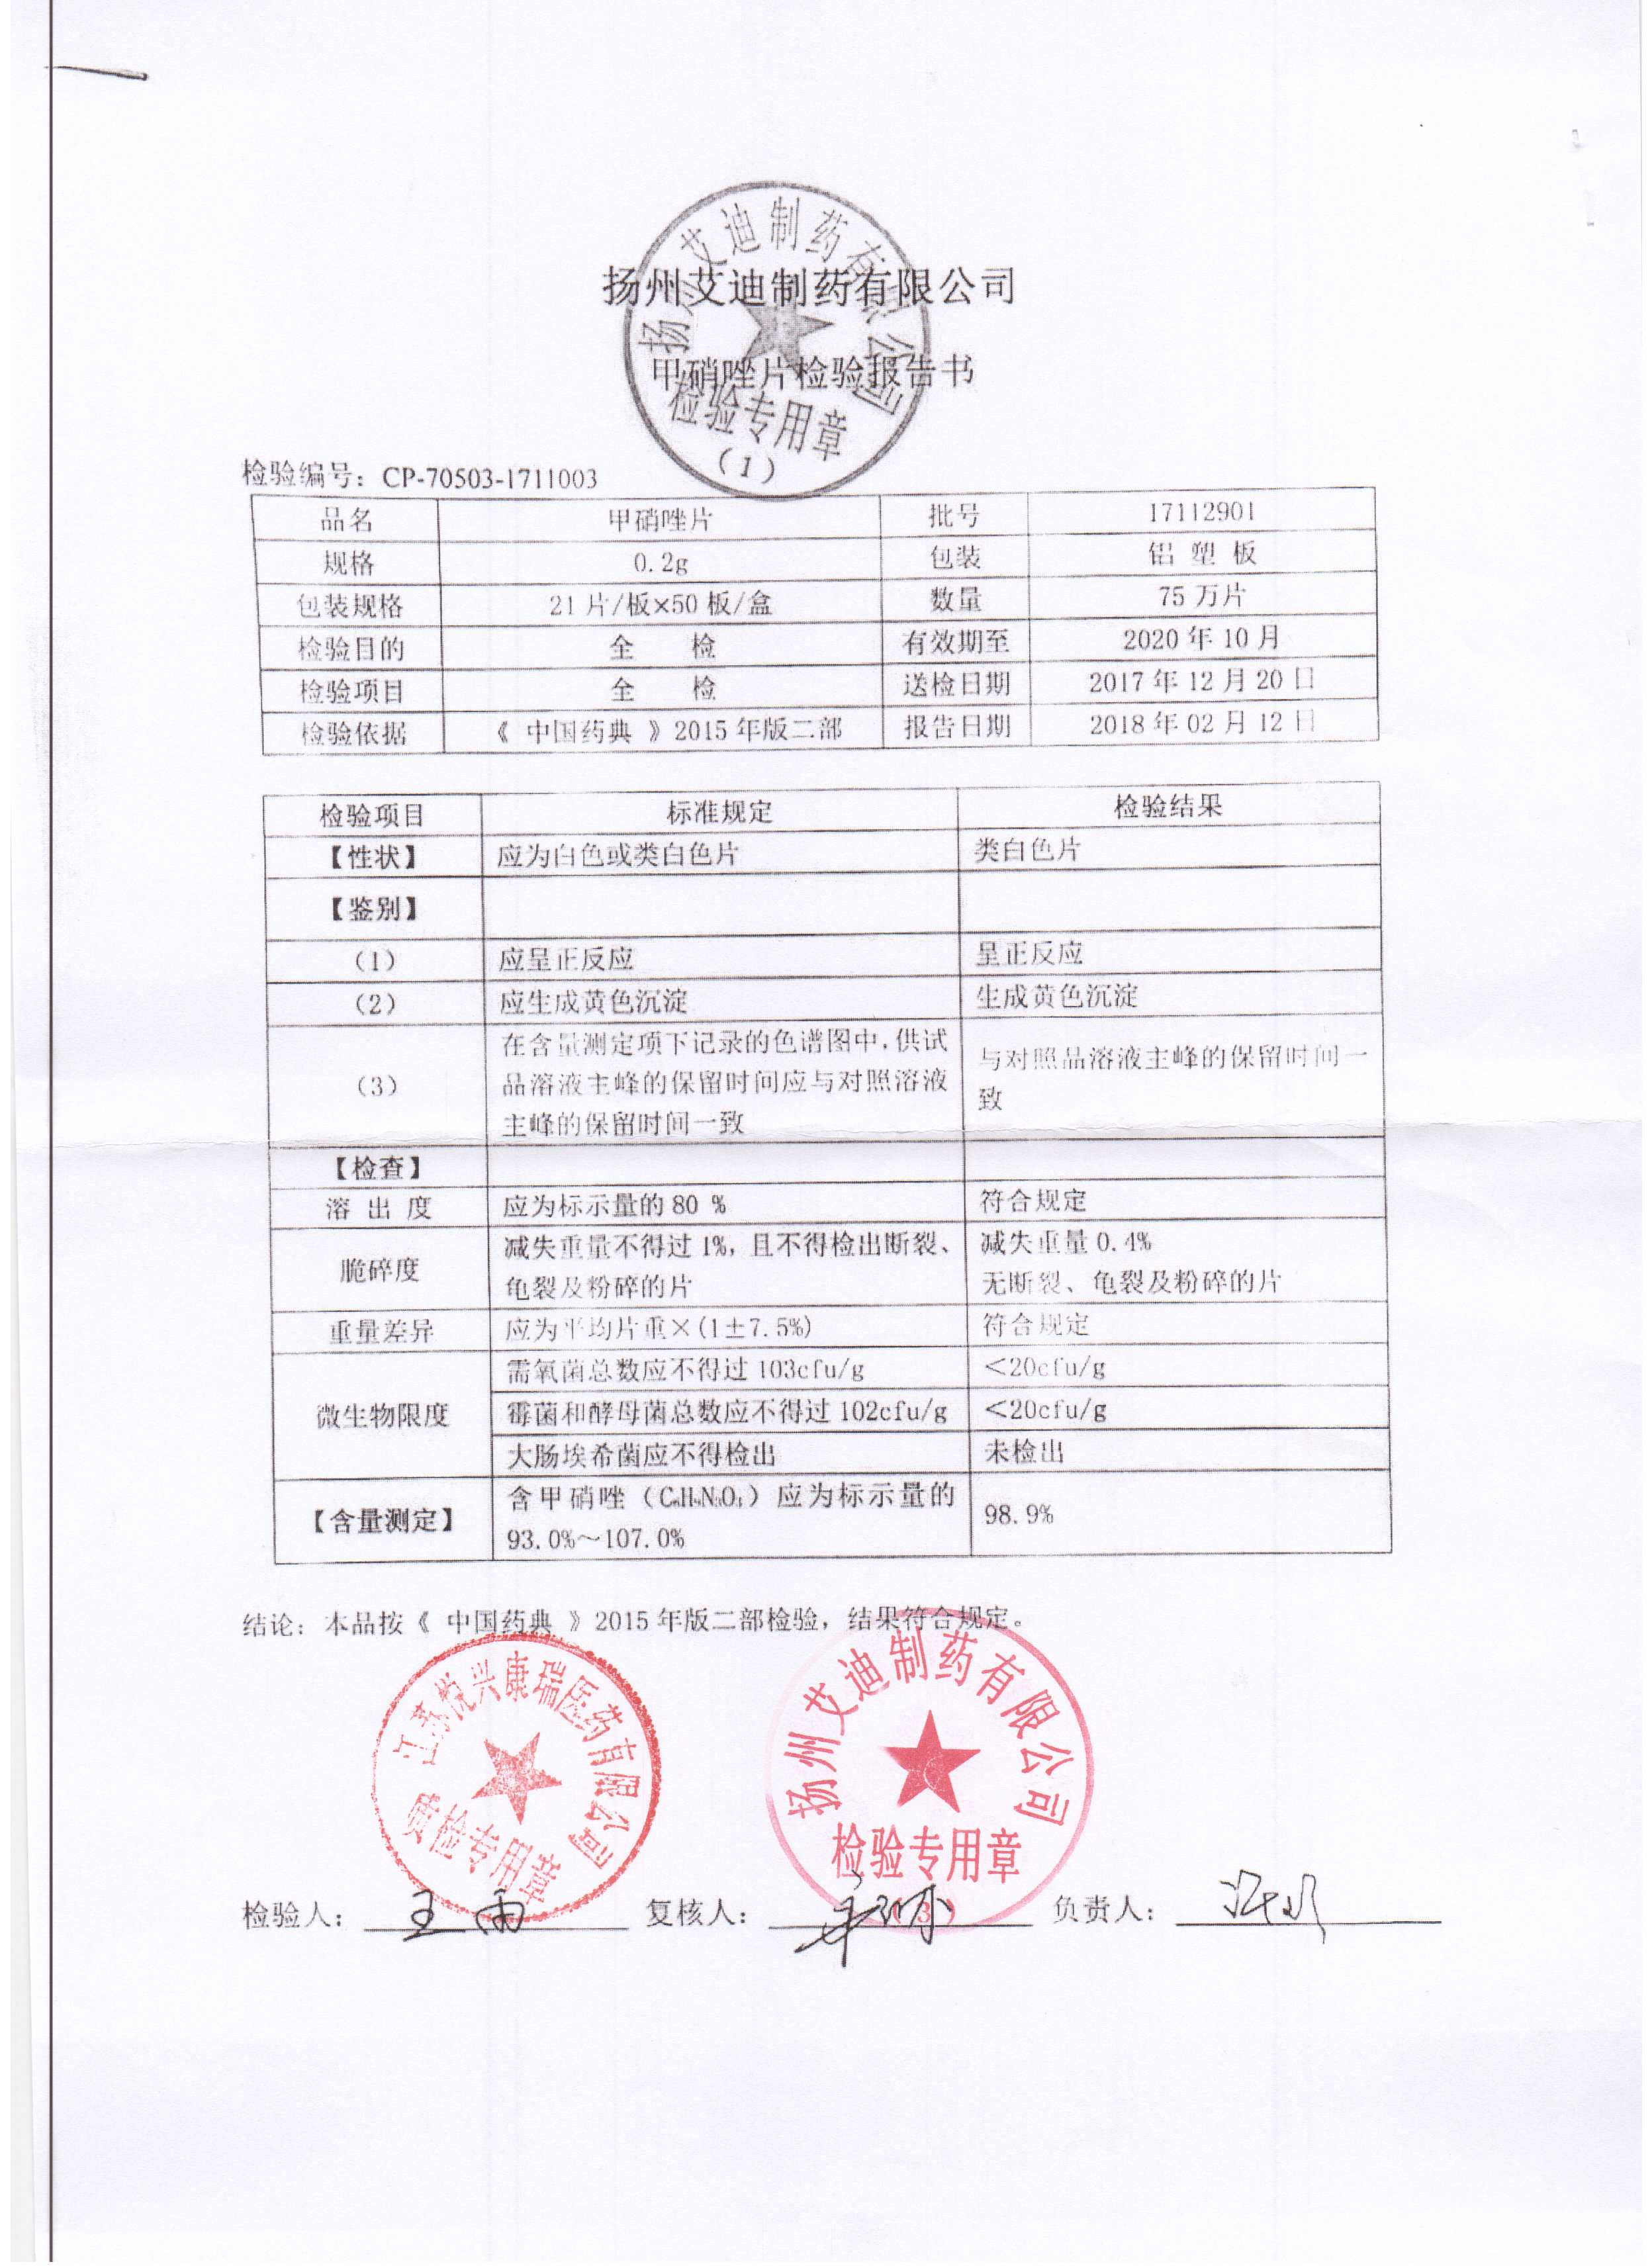 扬州艾迪制药有限公司
甲硝唑片检验报告书
扬州艾迪制药有限公司
检验专用章
(1)
检验编号：CP-70503-1711003
品名 甲硝唑片 批号 17112901
规格 0.2g 包装 铝 塑 板
包装规格 21 片/板×50 板/盒 数量 75 万片
检验目的 全 检 有效期至 2020 年 10 月
检验项目 全 检 送检日期 2017 年 12 月 20 日
检验依据 《 中国药典 》2015 年版二部 报告日期 2018 年 02 月 12 日
检验项目 标准规定 检验结果
【性状】 应为白色或类白色片 类白色片
【鉴别】
（1） 应呈正反应 呈正反应
（2） 应生成黄色沉淀 生成黄色沉淀
（3） 在含量测定项下记录的色谱图中,供试
品溶液主峰的保留时间应与对照溶液
主峰的保留时间一致
与对照品溶液主峰的保留时间一
致
【检查】
溶 出 度 应为标示量的 80 % 符合规定
脆碎度 减失重量不得过 1%，且不得检出断裂、
龟裂及粉碎的片
减失重量 0.4%
无断裂、龟裂及粉碎的片
重量差异 应为平均片重×(1±7.5%) 符合规定
微生物限度 需氧菌总数应不得过 103cfu/g ＜20cfu/g
霉菌和酵母菌总数应不得过 102cfu/g ＜20cfu/g
大肠埃希菌应不得检出 未检出
【含量测定】 含甲硝唑（C₆H₉N₃O₃）应为标示量的
93.0%～107.0%
98.9%
结论：本品按《 中国药典 》2015 年版二部检验，结果符合规定。
江苏悦兴康瑞医药有限公司
质检专用章
扬州艾迪制药有限公司
检验专用章
(3)
检验人： 王雨 复核人： 负责人：